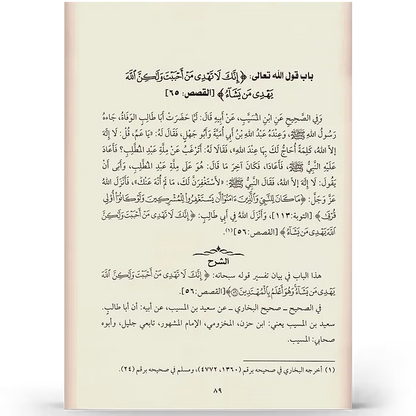 باب قول الله تعالى: ﴿إِنَّكَ لَا تَهْدِى مَنْ أَحْبَبْتَ وَلَٰكِنَّ ٱللَّهَ
يَهْدِى مَن يَشَآءُ﴾ [القصص: ٦٥]
وَفِي الصَّحِيحِ عَنِ ابْنِ الْمُسَيَّبِ، عَنْ أَبِيهِ قَالَ: لَمَّا حَضَرَتْ أَبَا طَالِبٍ الْوَفَاةُ، جَاءَهُ
رَسُولُ اللهِ ﷺ، وَعِنْدَهُ عَبْدُ اللهِ بْنُ أَبِي أُمَيَّةَ وَأَبُو جَهْلٍ، فَقَالَ لَهُ: «يَا عَمِّ، قُلْ: لَا إِلَهَ
إِلاَّ اللهُ، كَلِمَةً أُحَاجُّ لَكَ بِهَا عِنْدَ اللهِ»، فَقَالَا لَهُ: أَتَرْغَبُ عَنْ مِلَّةِ عَبْدِ الْمُطَّلِبِ؟ فَأَعَادَ
عَلَيْهِ النَّبِيُّ ﷺ، فَأَعَادَا، فَكَانَ آخِرَ مَا قَالَ: هُوَ عَلَى مِلَّةِ عَبْدِ الْمُطَّلِبِ، وَأَبَى أَنْ
يَقُولَ: لَا إِلَهَ إِلاَّ اللهُ، فَقَالَ النَّبِيُّ ﷺ: «لأَسْتَغْفِرَنَّ لَكَ، مَا لَمْ أُنْهَ عَنْكَ»، فَأَنْزَلَ اللهُ
عَزَّ وَجَلَّ: ﴿مَا كَانَ لِلنَّبِيِّ وَٱلَّذِينَ ءَامَنُوٓا۟ أَن يَسْتَغْفِرُوا۟ لِلْمُشْرِكِينَ وَلَوْ كَانُوٓا۟ أُو۟لِى
قُرْبَىٰ﴾ [التوبة: ١١٣]، وَأَنْزَلَ اللهُ فِي أَبِي طَالِبٍ: ﴿إِنَّكَ لَا تَهْدِى مَنْ أَحْبَبْتَ وَلَٰكِنَّ
ٱللَّهَ يَهْدِى مَن يَشَآءُ﴾ [القصص: ٥٦] (١).
الشرح
هذا الباب في بيان تفسير قوله سبحانه: ﴿إِنَّكَ لَا تَهْدِى مَنْ أَحْبَبْتَ وَلَٰكِنَّ ٱللَّهَ
يَهْدِى مَن يَشَآءُ وَهُوَ أَعْلَمُ بِٱلْمُهْتَدِينَ﴾ [القصص: ٥٦].
في الصحيح ـ صحيح البخاري ـ عن سعيد بن المسيب، عن أبيه: أن أبا طالب.
سعيد بن المسيب يعني: ابن حزن، المخزومي، الإمام المشهور، تابعي جليل، وأبوه
صحابي: المسيب.
(١) أخرجه البخاري في صحيحه برقم (١٣٦٠، ٤٧٧٢)، ومسلم في صحيحه برقم (٢٤).
٨٩